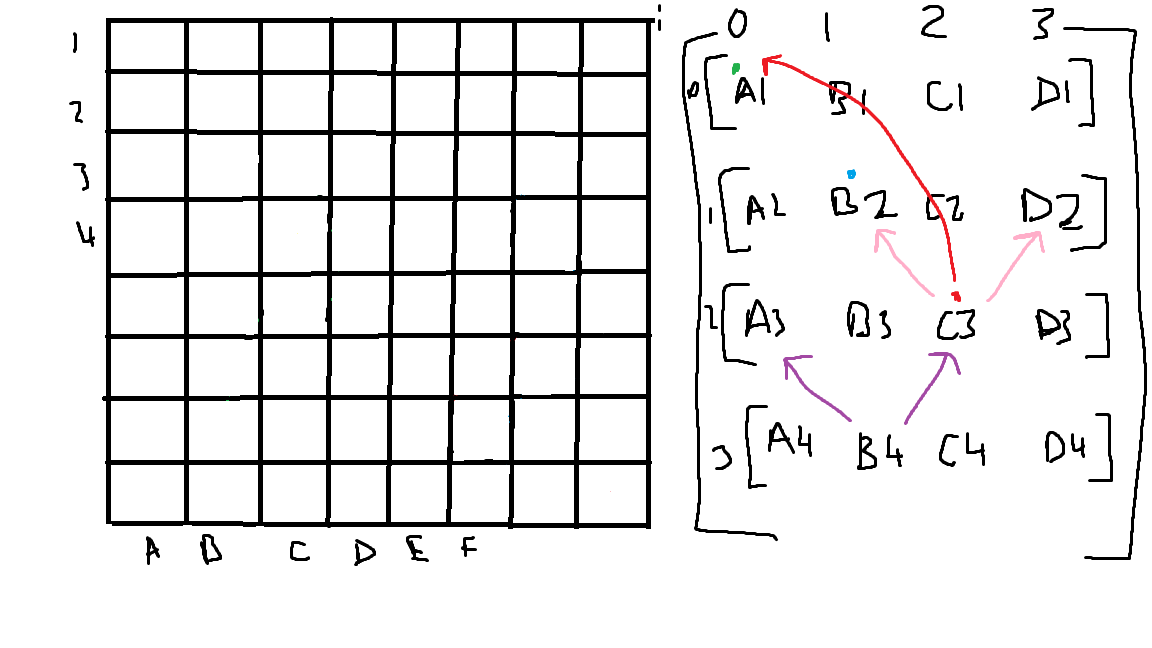 1
2
3
4
A B C D E F
0 1 2 3
0 [A1 B1 C1 D1]
1 [A2 B2 C2 D2]
2 [A3 B3 C3 D3]
3 [A4 B4 C4 D4]